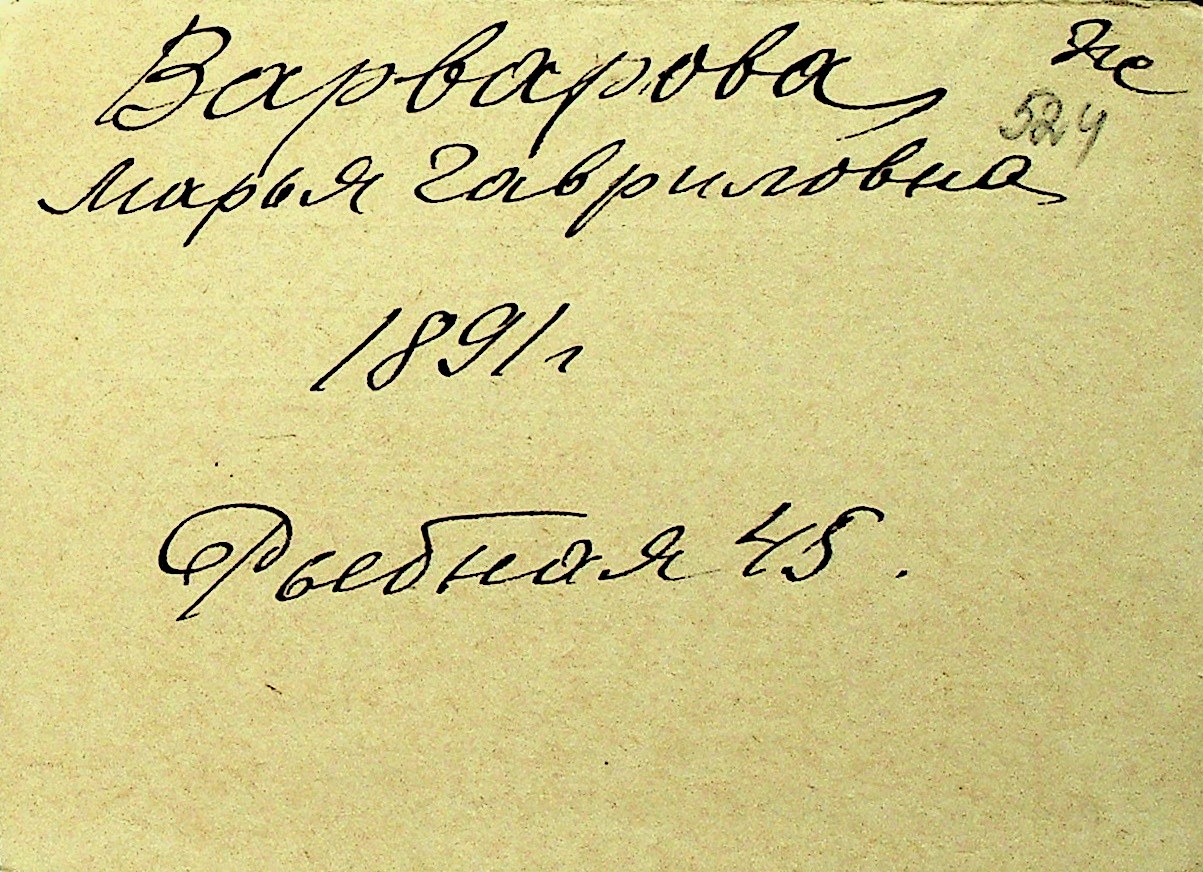 Варварова,
524
Марья Гавриловна
1891 г
Рыбная 45.